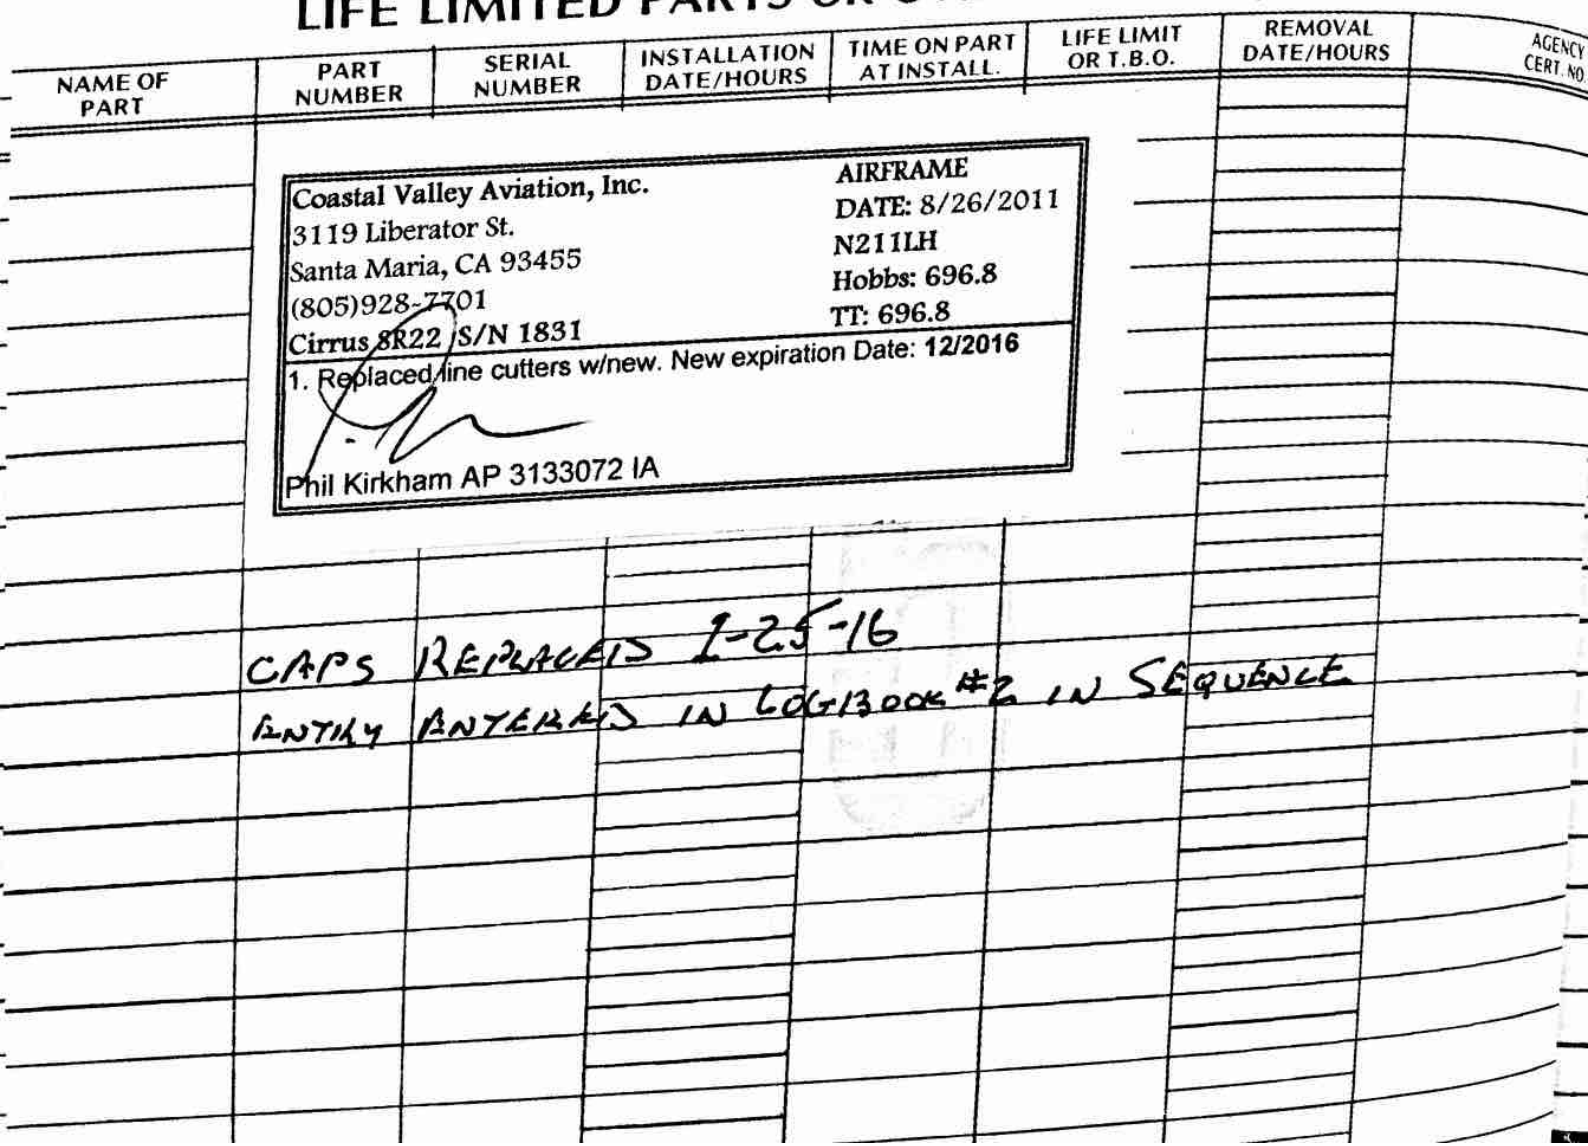 LIFE LIMITED PARTS OR
NAME OF PART
PART NUMBER
SERIAL NUMBER
INSTALLATION DATE/HOURS
TIME ON PART AT INSTALL.
LIFE LIMIT OR T.B.O.
REMOVAL DATE/HOURS
AGENCY CERT. NO.
Coastal Valley Aviation, Inc.
3119 Liberator St.
Santa Maria, CA 93455
(805)928-7701
Cirrus SR22 S/N 1831
AIRFRAME
DATE: 8/26/2011
N211LH
Hobbs: 696.8
TT: 696.8
1. Replaced line cutters w/new. New expiration Date: 12/2016
Phil Kirkham AP 3133072 IA
CAPS REPLACED 1-25-16
ENTRY ENTERED IN LOGBOOK #2 IN SEQUENCE